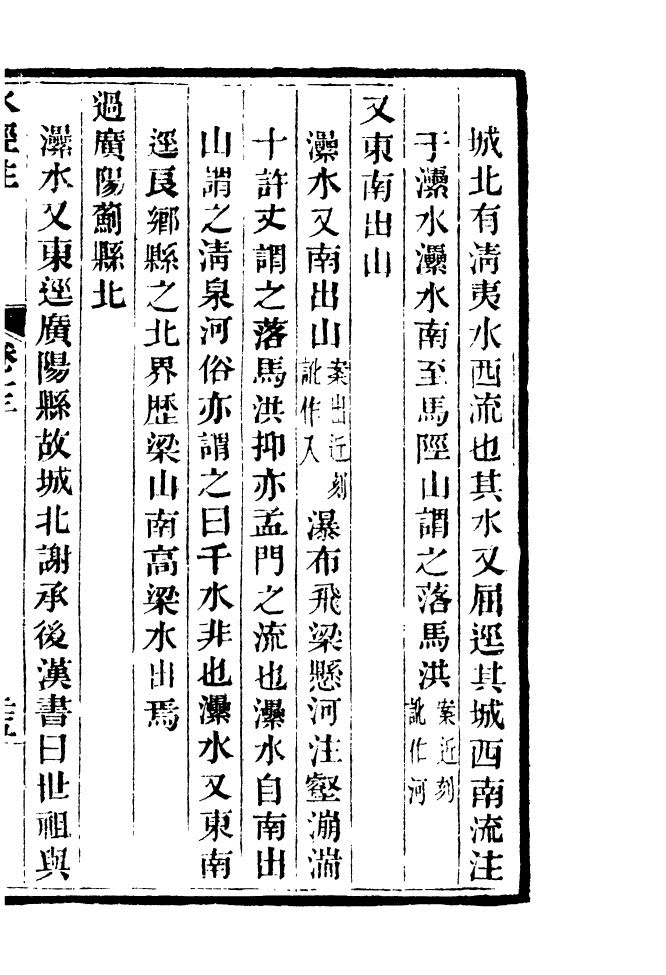 城北有清夷水西流也其水又屈逕其城西南流注
于㶟水㶟水南至馬陘山謂之落馬洪案近刻訛作河
又東南出山
㶟水又南出山案出近刻訛作入瀑布飛梁懸河注壑漰湍
十許丈謂之落馬洪抑亦孟門之流也㶟水自南出
山謂之清泉河俗亦謂之曰千水非也㶟水又東南
逕良鄉縣之北界歷梁山南高梁水出焉
過廣陽薊縣北
㶟水又東逕廣陽縣故城北謝承後漢書曰世祖與
水經注 卷十三